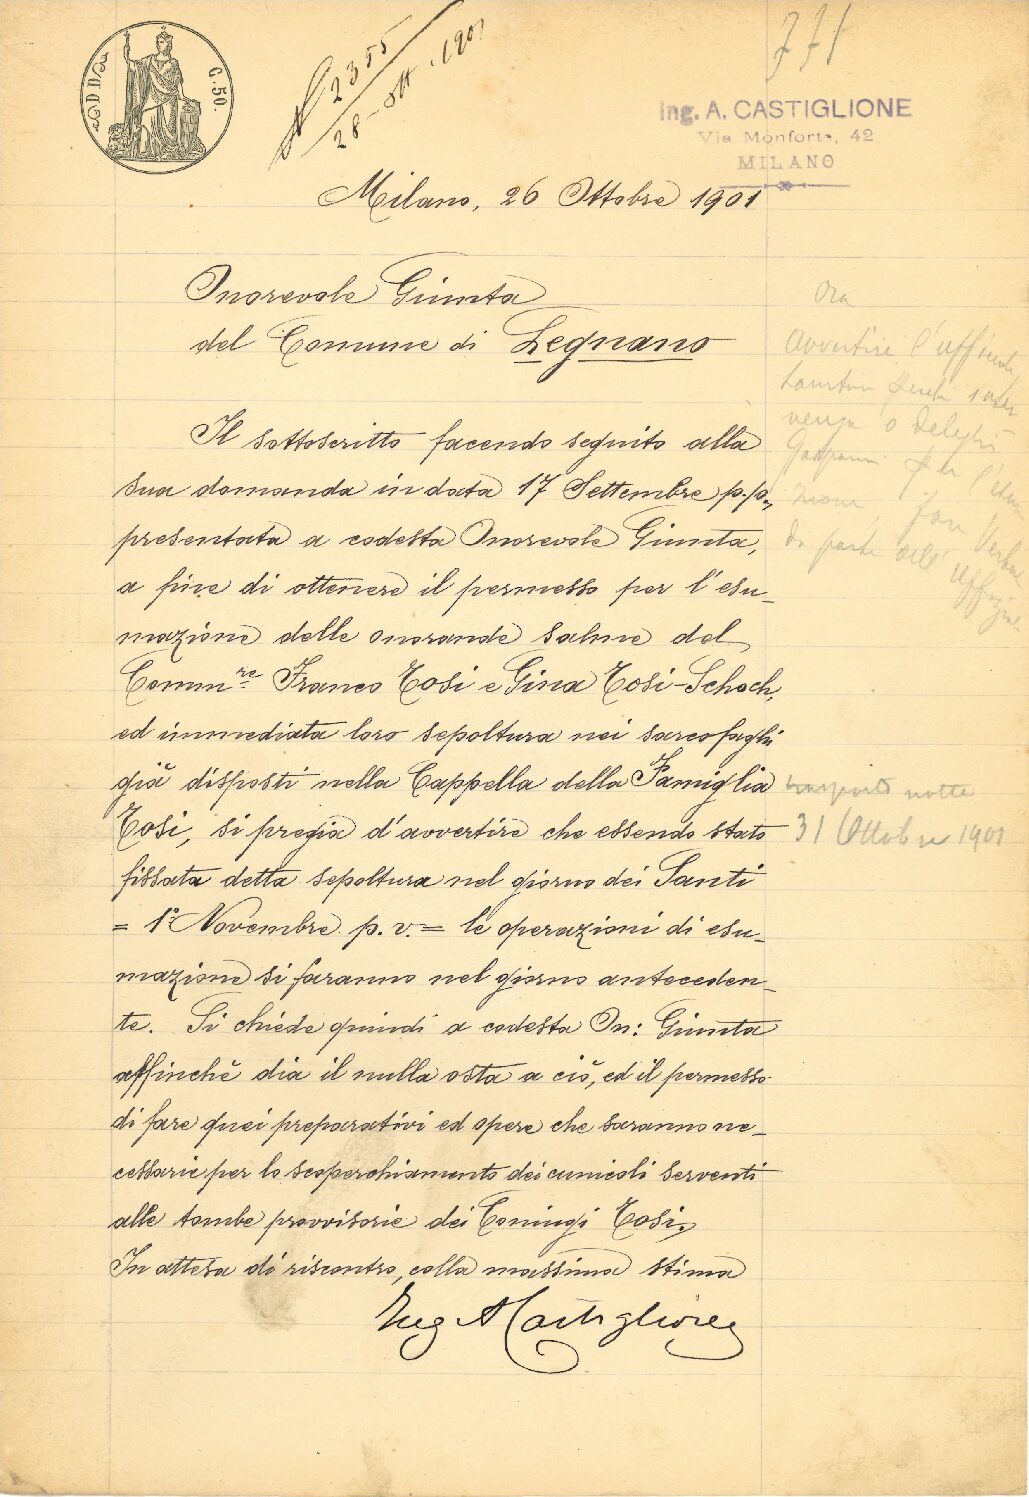 C. 50.
N 2355
28 - Ott. 1901
771
Ing. A. CASTIGLIONE
Via Monforte, 42
MILANO
Milano, 26 Ottobre 1901
Onorevole Giunta
del Comune di Legnano
Ora
Avvertire l'uff
venga o deleghi
per l'
fare Verbale
da parte dell'
Il sottoscritto facendo seguito alla
sua domanda in data 17 Settembre p.p.,
presentata a codesta Onorevole Giunta,
a fine di ottenere il permesso per l'esu-
mazione delle onorande salme del
Comm.re Franco Tosi e Gina Tosi-Schoch,
ed immediata loro sepoltura nei sarcofaghi
già disposti nella Cappella della Famiglia
Tosi, si pregia d'avvertire che essendo stato
fissata detta sepoltura nel giorno dei Santi
= 1° Novembre p. v. = le operazioni di esu-
mazione si faranno nel giorno anteceden-
te. Si chiede quindi a codesta On: Giunta
affinchè dia il nulla osta a ciò, ed il permesso
di fare quei preparativi ed opere che saranno ne-
cessarie per lo scoperchiamento dei cunicoli serventi
alle tombe provvisorie dei Coniugi Tosi.
In attesa di riscontro, colla massima stima
Ing A Castiglione
trasporto notte
31 Ottobre 1901